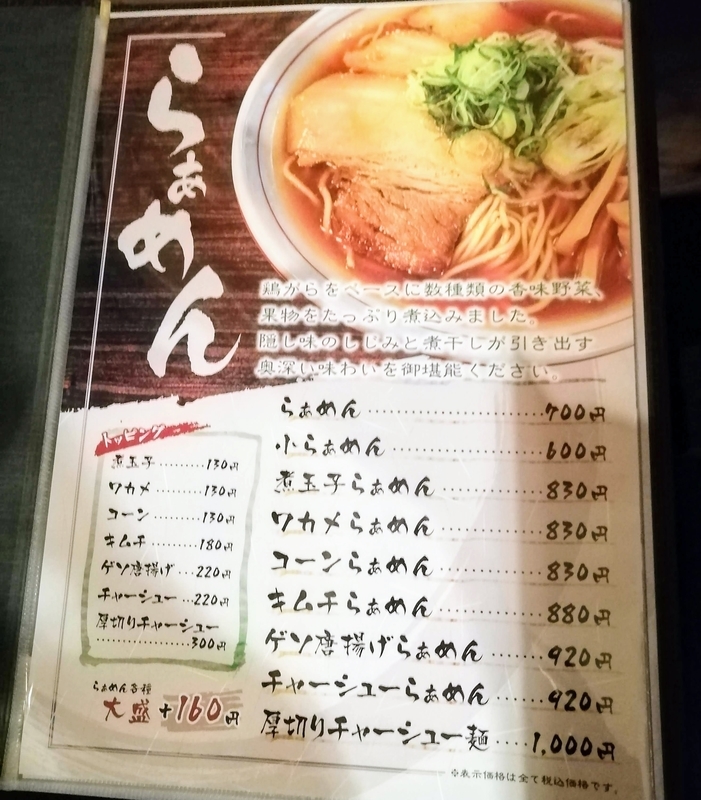 らぁめん
鶏がらをベースに数種類の香味野菜、
果物をたっぷり煮込みました。
隠し味のしじみと煮干しが引き出す
奥深い味わいを御堪能ください。
らぁめん……………………700円
小らぁめん…………………600円
煮玉子らぁめん……………830円
ワカメらぁめん……………830円
コーンらぁめん……………830円
キムチらぁめん……………880円
ゲソ唐揚げらぁめん………920円
チャーシューらぁめん……920円
厚切りチャーシュー麺……1,000円
トッピング
煮玉子………130円
ワカメ………130円
コーン………130円
キムチ………180円
ゲソ唐揚げ…220円
チャーシュー…220円
厚切りチャーシュー
……………300円
らぁめん各種
大盛+160円
※表示価格は全て税込価格です。